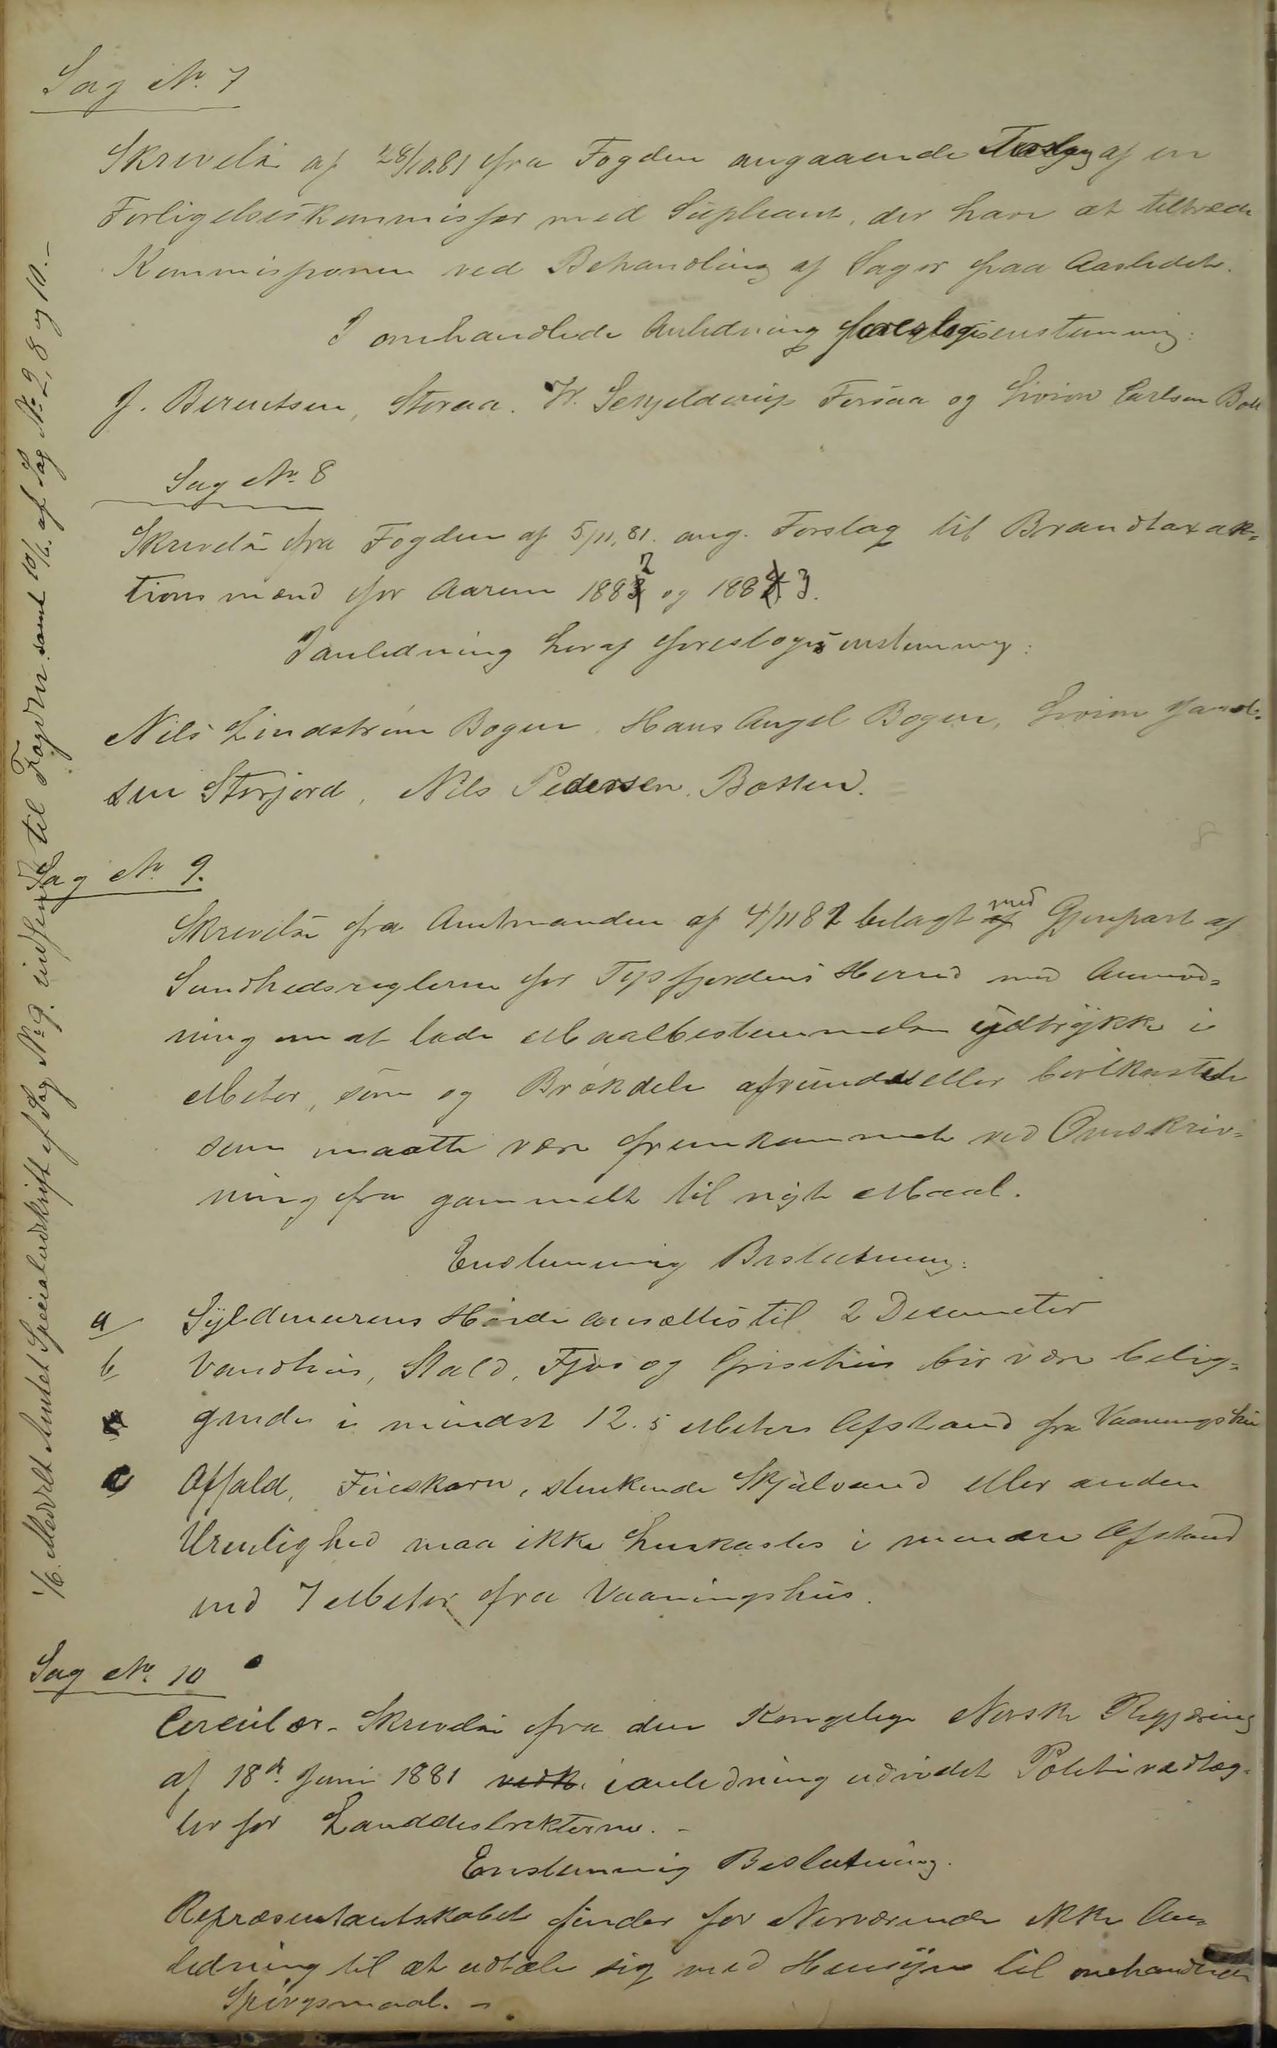 Sag No. 7
Skrivelse af 28/10.81 fra Fogden angaaende Forslag af en
Forligelseskommissær med Supleant, der have at tiltræde
Kommissionen ved Behandling af Sager paa Aastedet.
I omhandlede Anledning foresloges enstemmig:
J. Berentsen, Storaa. W. Schjelderup Forsaa og Sivion Carlsen Botn
Sag No. 8
Skrivelse fra Fogden af 5/11.81. ang. Forslag til Brandtaxak-
tionsmænd for Aarene 1882 og 1883.
I anledning heraf foresloges enstemmig:
Nils Lindstrøm Bogen, Hans Angel Bogen, Sivion
sen Storjord, Nils Pedersen Botten.
Sag No. 9.
Skrivelse fra Amtmanden af 4/11 81 belagt af med Gjenpart af
Sundhedsreglerne for Tysfjordens Herred med Anmod-
ning om at lade Maalbestemmelsen udtrykke i
Meter, som og Brøkdele afrundes eller bortkastede
som maatte være fremkommet ved Omskriv-
ning fra gammelt til nyt Maal.
Enstemmig Beslutning:
a Syldmurens Høide ansættes til 2 Decimeter
b Vandhus, Stald, Fjøs og Grisehus bør være belig-
gende i mindst 12.5 Meters Afstand fra Vaaningshus
c Affald, Fueskarn, stinkende Skjulvand eller anden
Urenlighed maa ikke henkastes i mindre Afstand
end 7 Meter fra Vaaningshus.
Sag No. 10
Circulær-Skrivelse fra den Kongelige Norske Regjering
af 18de Juni 1881 vedk. i anledning udvidet Politivedtæg-
ter for Landdistrikterne. -
Enstemmig Beslutning.
Repræsentantskabet finder for Nærværende ikke An-
ledning til at udtale sig med Hensyn til omhandlede
Spørgsmaal. -
1/6. Meddelt Amtet Specialudskrift af Sag No. 9. indsendt til Fogden samt 10/6. af Sag No. 2, 8 og 10. -